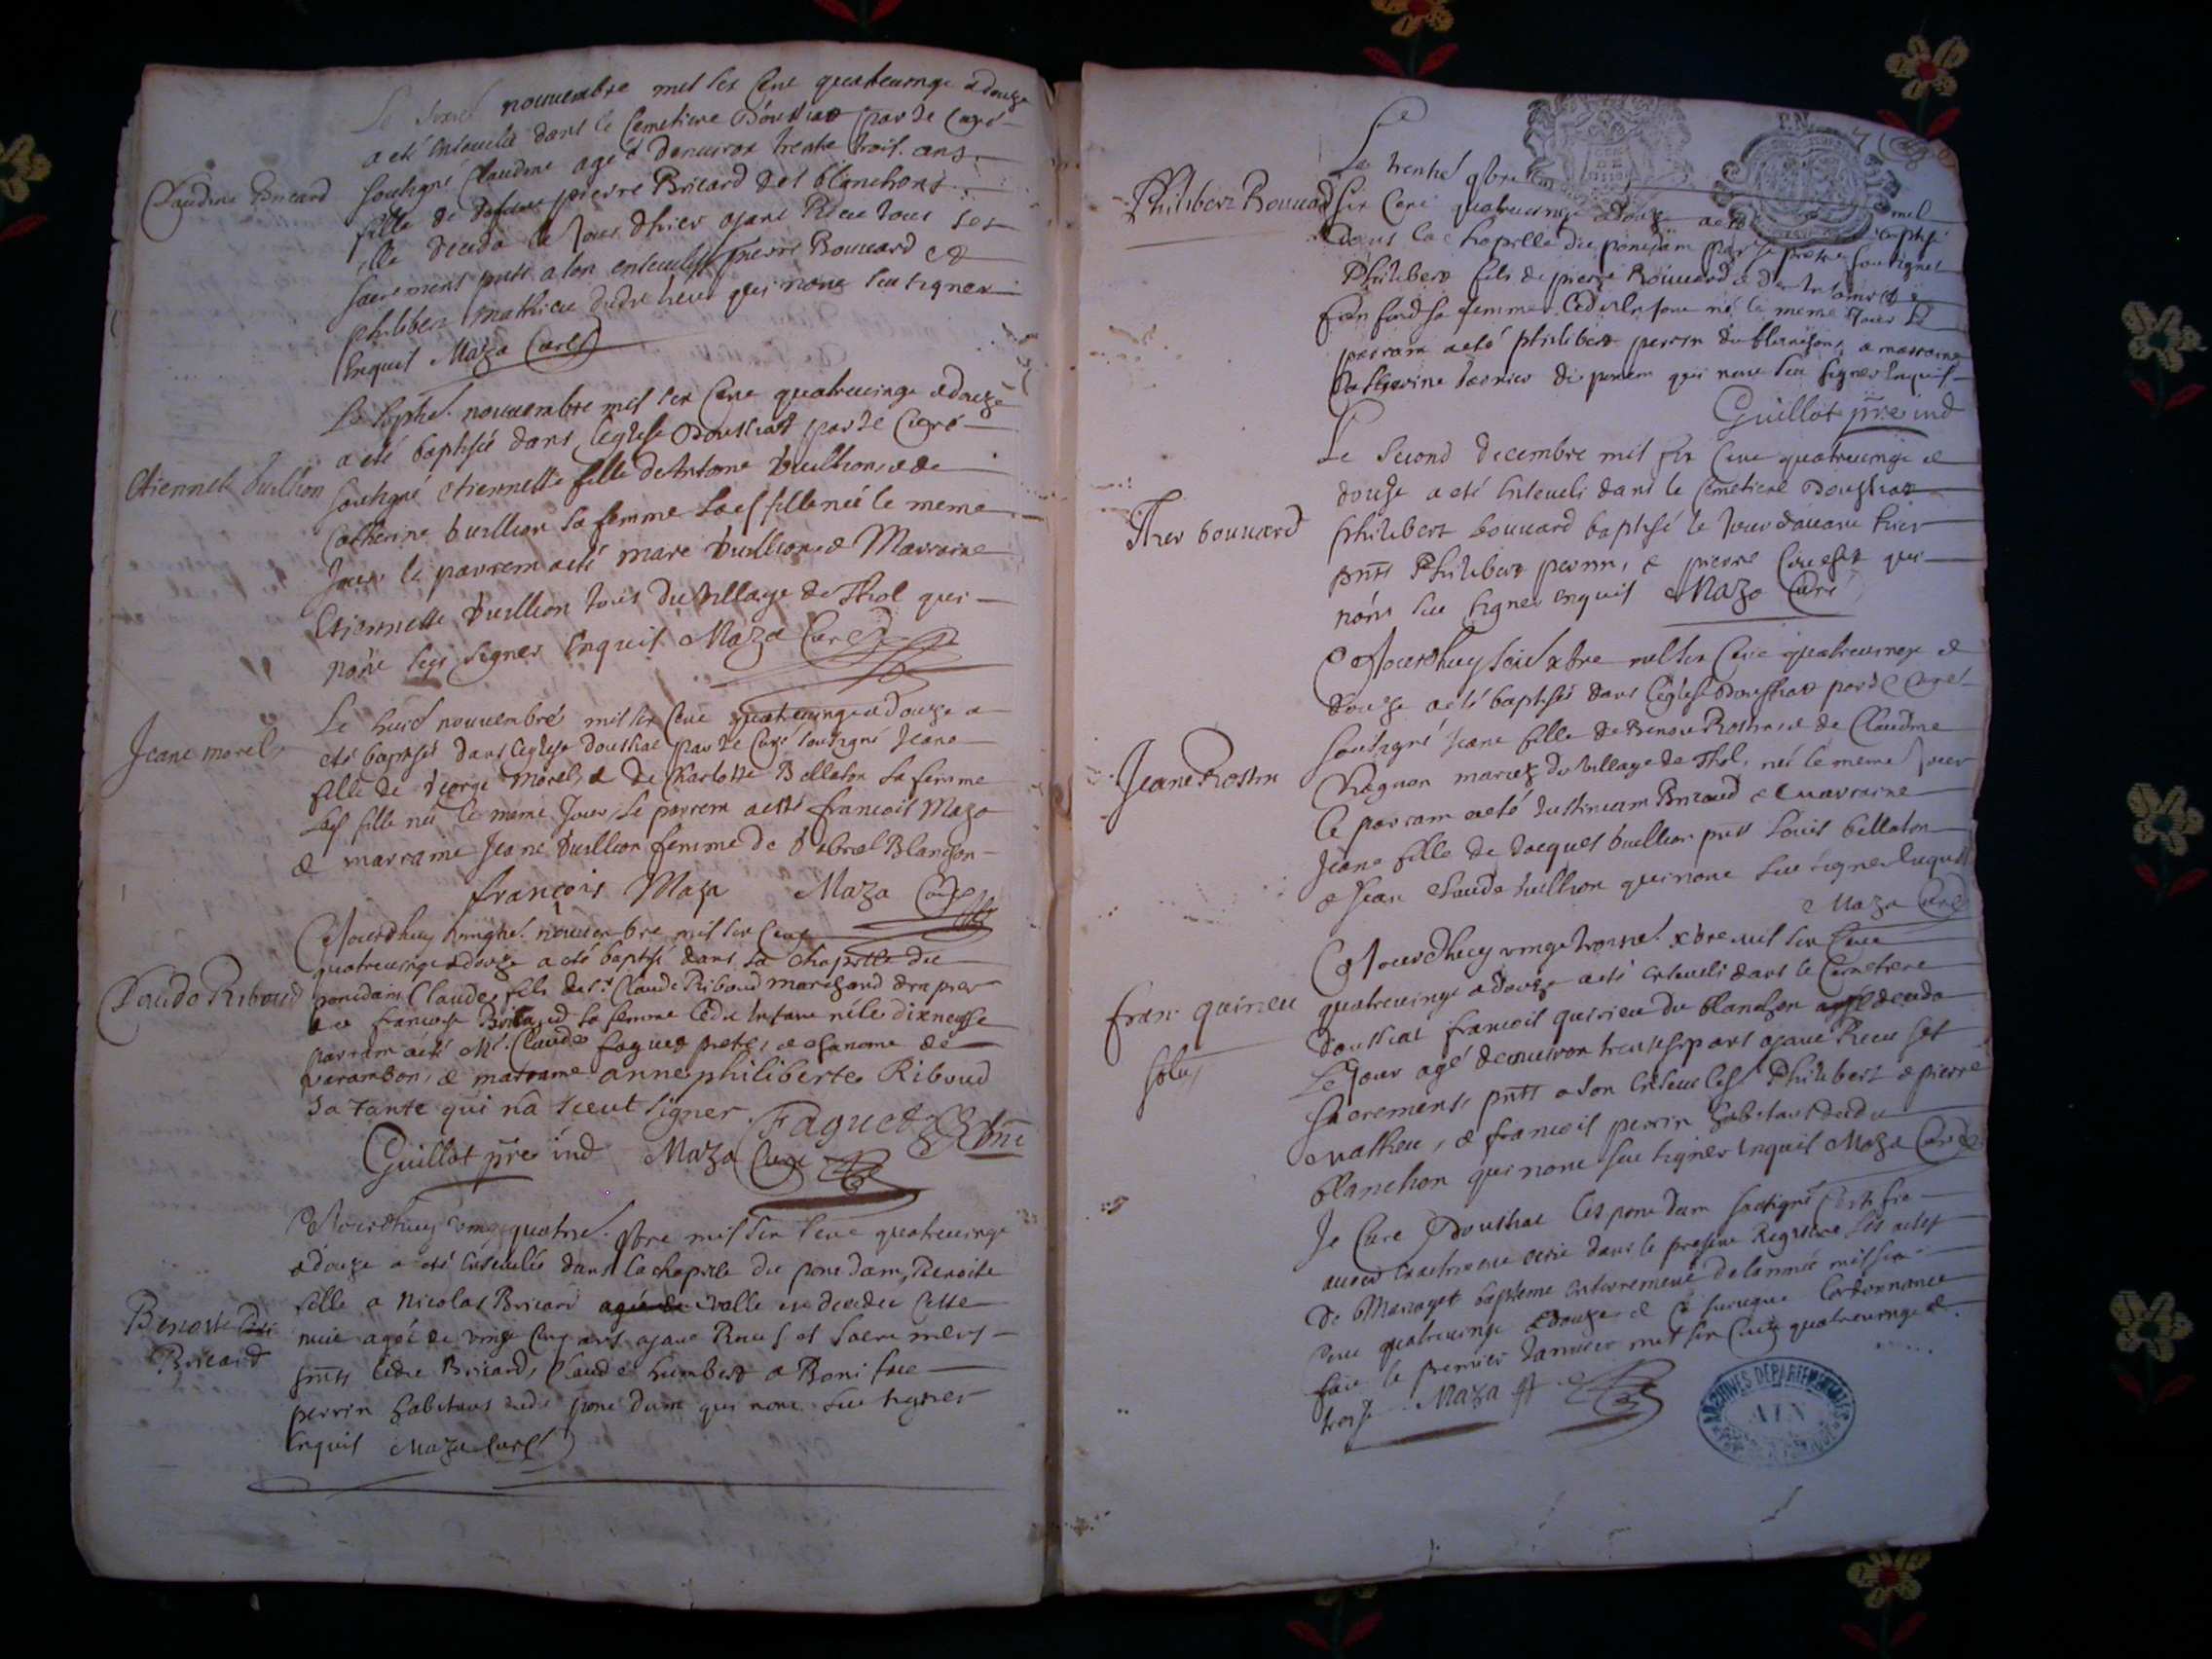 nouvembre mil six cent quatrevingt & douze
a eté Enseuelie dans le Cemetiere Doussiat par Le Curé
Claudine Bricard
soussigné Claudine agé d'enuiron trente trois ans
fille de deffunt pierre Bricard des blanchons
elle deceda le Jour d'hier ayant Receu tous ses
sacremens pnts a son enseuelissement pierre Bouuard &
philibert Mathieu dudit lieu qui n'ont sceu signer
Enquis Maza Curé
Le septie. nouuembre mil six Cent quatreuingt & douze
a eté baptisée dans l'eglise Doussiat par Le Curé
Etiennette Vuillion
soussigné etiennette fille de Antoine Vuillion & de
Catherine Vuillion sa femme lad. fille née le meme
Jour le parrein a eté Marc Vuillion & Marraine
Etiennette Vuillion tous du village de Thol qui
n'ont sceu signer Enquis Maza Curé
Jeane morel
Le huit nouuembre mil six Cent quatreuingt & douze a
eté baptisée dans l'eglise doussiat par Le Curé soussigné Jeane
fille de George Morel, & de Charlotte Bellaton sa femme
lad. fille née le meme Jour, Le parrein a esté francois Maza
& marraine Jeane Vuillion femme de Blanchon
françois Maza Maza Curé
Aujourdhuy nouuembre mil six Cent
quatreuingt & douze a eté baptisé dans la chapelle du
Claude Riboud
pondain Claude fils de Sr. Claude Riboud marchand drapier
& francoise sa femme Ledit Enfant né le dixneufue
parrain a eté Mr. Claude faguet pretre, & chanoine de
Varambon, & marraine anne philiberte Riboud
sa Tante qui n'a sceut signer. Faguet
Guillot pre ind Maza Curé
Aujourdhuy vingtquatrie. 9bre mil six Cent quatreuingt
& douze a eté Enseuelie dans la chapelle du pont dam, Benoite
fille a Nicolas Bricard elle est decedée Cette
Benoite
Bricard
nuit agée de vingt Cinq ans ayant Receu ses Sacremens
pnts ledit Bricard, Claude humbert & Boniface
perrin habitans dudit pont dam qui n'ont sceu signer
Enquis Maza Curé
Le trentie. 9bre mil
Philibert Bouuard
six Cent quatreuingt & douze a eté baptisé
Dans la chapelle du pondam par le pretre soussigné
Philibert fils de pierre Bouuard &
sa femme Ledit Enfant né le meme Jour Le
parrain a eté philibert perrin du blanchon, & marraine
Catherine du pondam qui n'ont sceu signer Enquis
Guillot pre ind
Le Second decembre mil six Cent quatreuingt &
douze a eté Enseueli dans le Cemetiere Doussiat
bouuard
philibert bouuard baptisé le Jour d'auant hier
pnts Philibert perrin, & pierre qui
n'ont sceu signer Enquis Maza Curé
Aujourdhuy xbre mil six Cent quatreuingt &
douze a eté baptisée dans l'eglise Doussiat par Le Curé
Jeane Rostin
soussigné Jeane fille de Benoit Rostin & de Claudine
Chagnon mariez du village de Thol, née le meme Jour
le parrain a eté Bricaud & marraine
Jeane fille de Jacques Vuillion pnts Louis bellaton
& Jean Claude Vuillion qui n'ont sceu signer Enquis
Maza Curé
Aujourdhuy vingt xbre mil six Cent
fran. quirieu
quatreuingt & douze a eté enseueli dans le Cemetiere
doussiat francois quirieu du blanchon decedé
Le Jour agé denuiron trente sept ans ayant Receu ses
sacremens pnts a son Enseuelisst Philibert & pierre
Mathieu, & francois perrin habitans dudit
blanchon qui n'ont sceu signer Enquis Maza Curé
Je Curé Doussiat & pont dam soussigné Certifie
auoir dans le present Registre les actes
de Mariages baptemes enterremens de lannée mil six
Cent quatreuingt & douze & Ce suiuant Lordonnance
faict le premier Januier mil six Cent quatreuingt &
treize Maza
ARCHIVES DEPARTEMENTALES
AIN